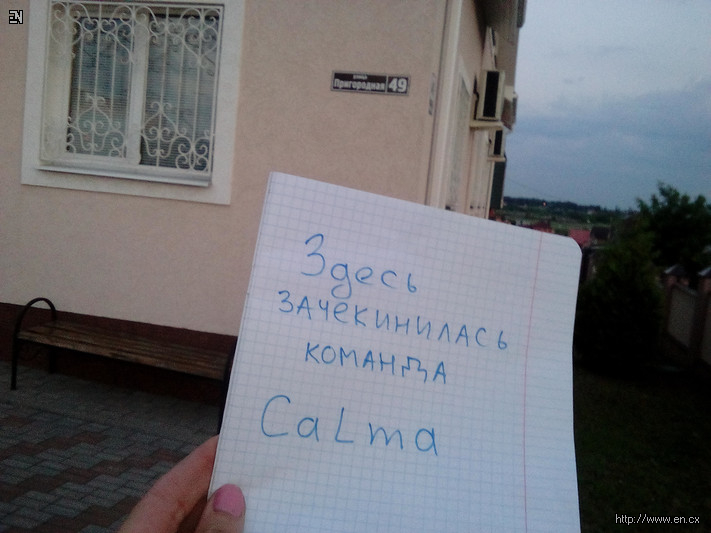 EN
улица
Пригородная 49
Здесь
зачекинилась
команда
CaLma
http://www.en.cx